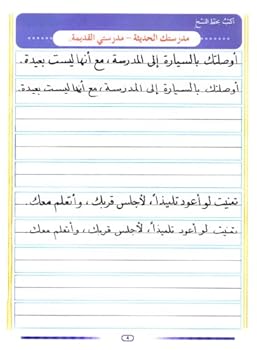 أكتب بخط النسخ
مدرستك الحديثة – مدرستي القديمة
أوصلتك بالسيارة إلى المدرسة، مع أنها ليست بعيدة.
أوصلتك بالسيارة إلى المدرسة، مع أنها ليست بعيدة.
تمنيت لو أعود تلميذاً، لأجلس قربك، وأتعلم معك.
تمنيت لو أعود تلميذاً، لأجلس قربك، وأتعلم معك.
٤